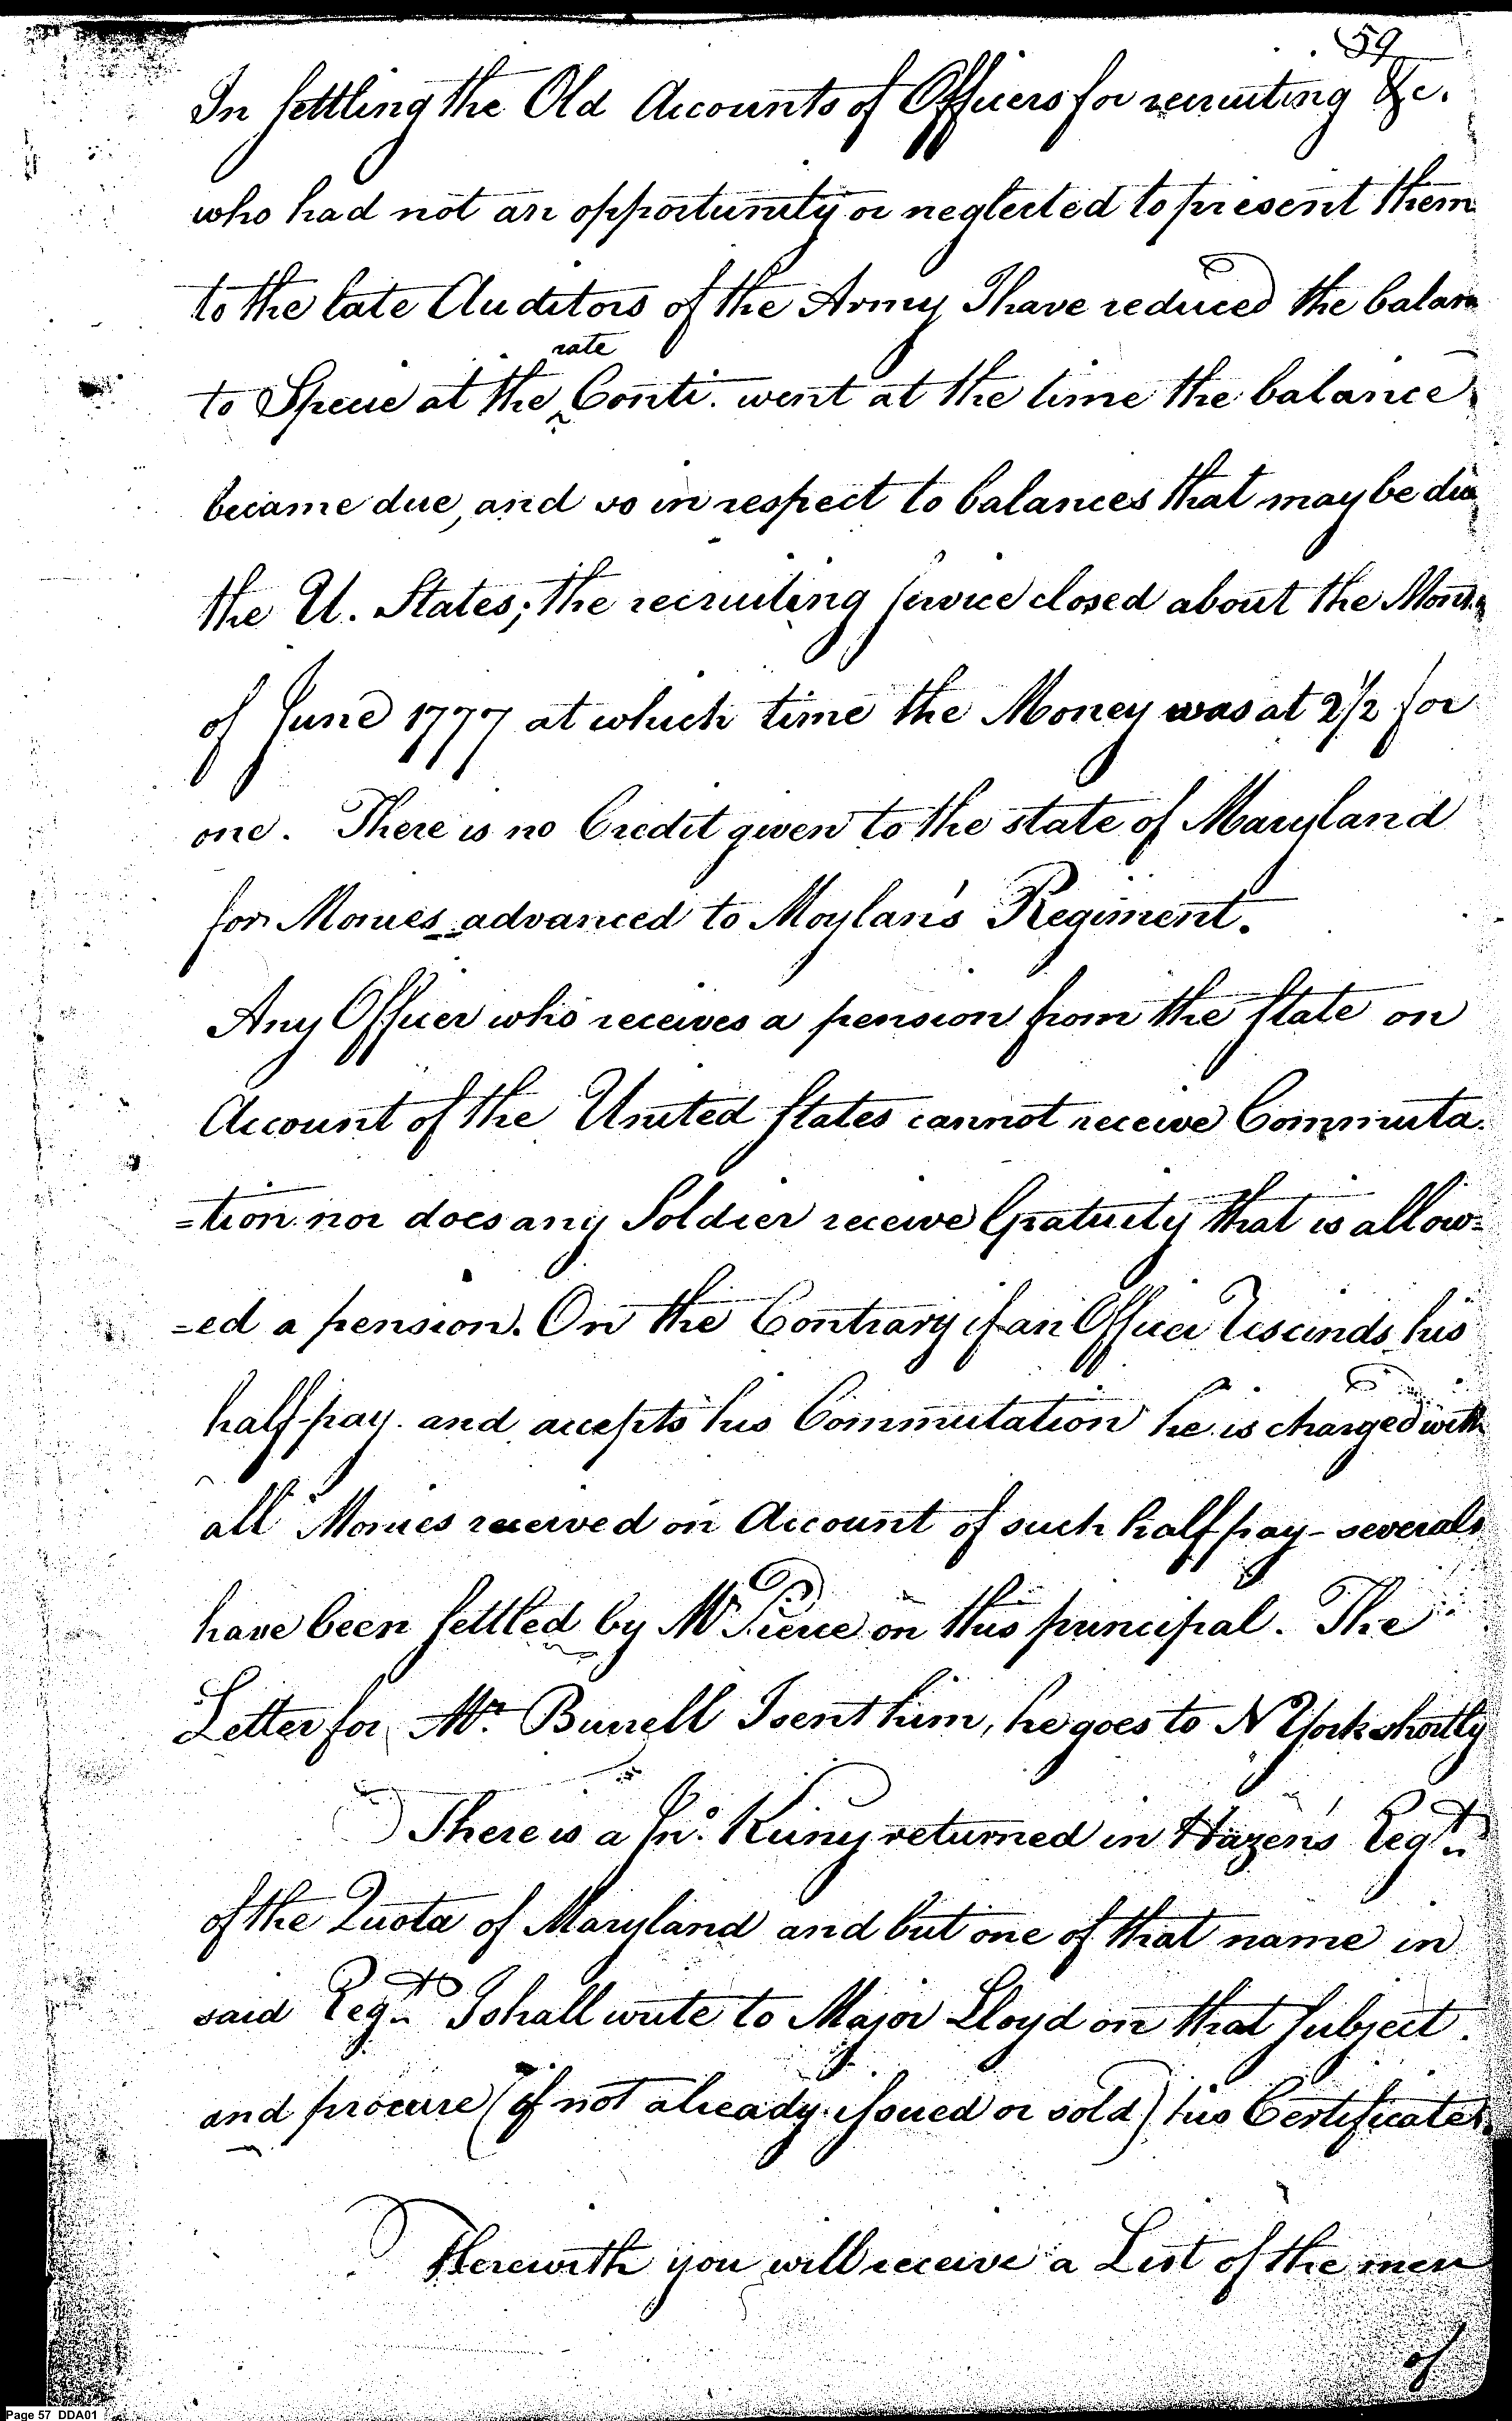 59
In settling the Old Accounts of Officers for recruiting &c.
who had not an opportunity or neglected to present them
to the late Auditors of the Army I have reduced the balan
rate
to Specie at the ^ Conti. went at the time the balance
became due, and so in respect to balances that may be due
the U. States; the recruiting service closed about the Month
of June 1777 at which time the Money was at 2½ for
one. There is no Credit given to the state of Maryland
for Monies advanced to Moylan's Regiment.
Any Officer who receives a pension from the State on
Account of the United States cannot receive Commuta-
=tion nor does any Soldier receive Gratuity that is allow=
=ed a pension. On the Contrary if an Officer Rescinds his
half-pay and accepts his Commutation he is charged with
all Monies received on Account of such half pay - severals
have been settled by Mr Pierce on this principal. The
Letter for Mr. Burrell I sent him, he goes to N York shortly
There is a Jno. returned in Hazen's Regt.
of the Quota of Maryland and but one of that name in
said Regt. I shall write to Major Lloyd on that subject.
and procure (if not already issued or sold) his Certificates.
Herewith you will receive a List of the men
of
Page 57 DDA01